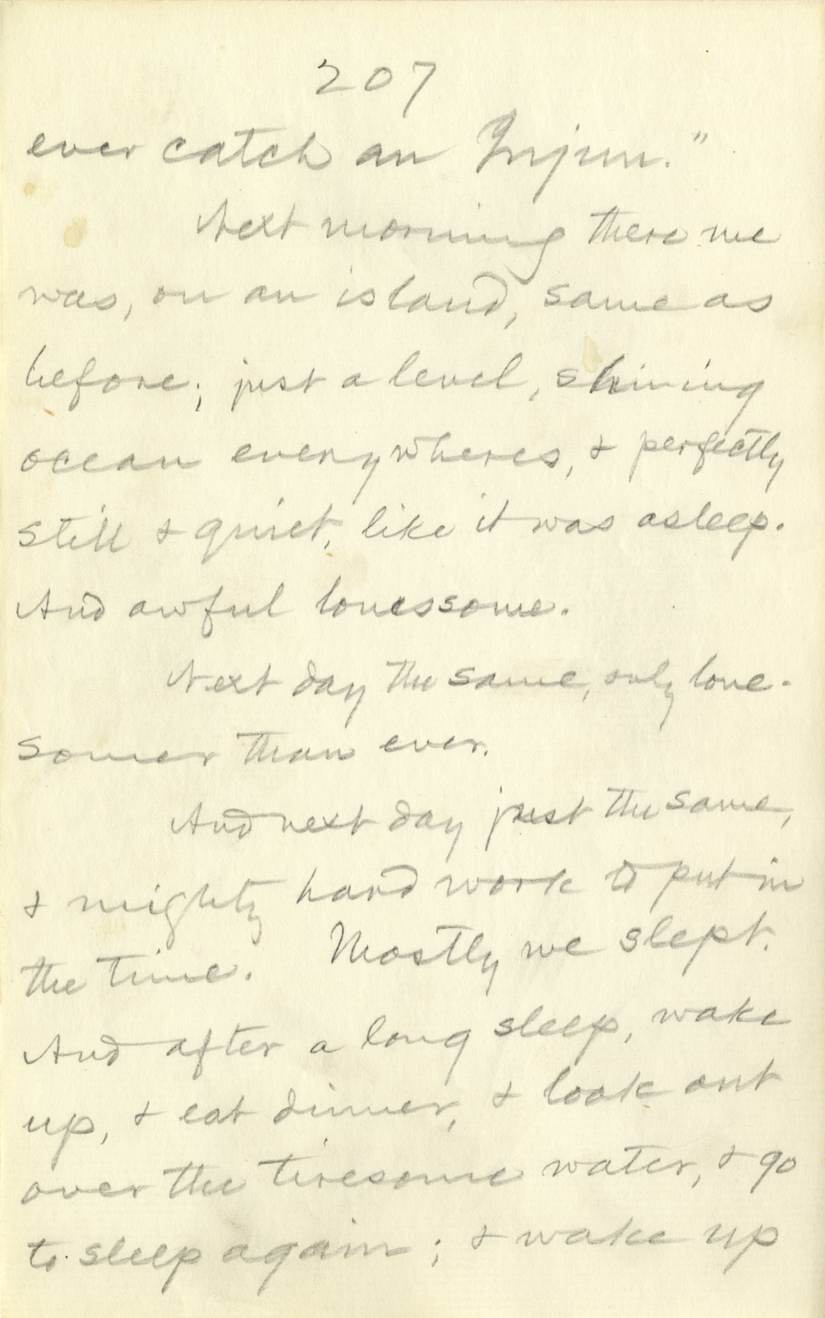 207
ever catch an Injun."
Next morning there we
was, on an island, same as
before; just a level, shining
ocean everywheres, & perfectly
still & quiet, like it was asleep.
And awful lonessome.
Next day the same, only lone-
somer than ever.
And next day just the same,
& mighty hard work to put in
the time. Mostly we slept.
And after a long sleep, wake
up, & eat dinner, & look out
over the tiresome water, & go
to sleep again; & wake up